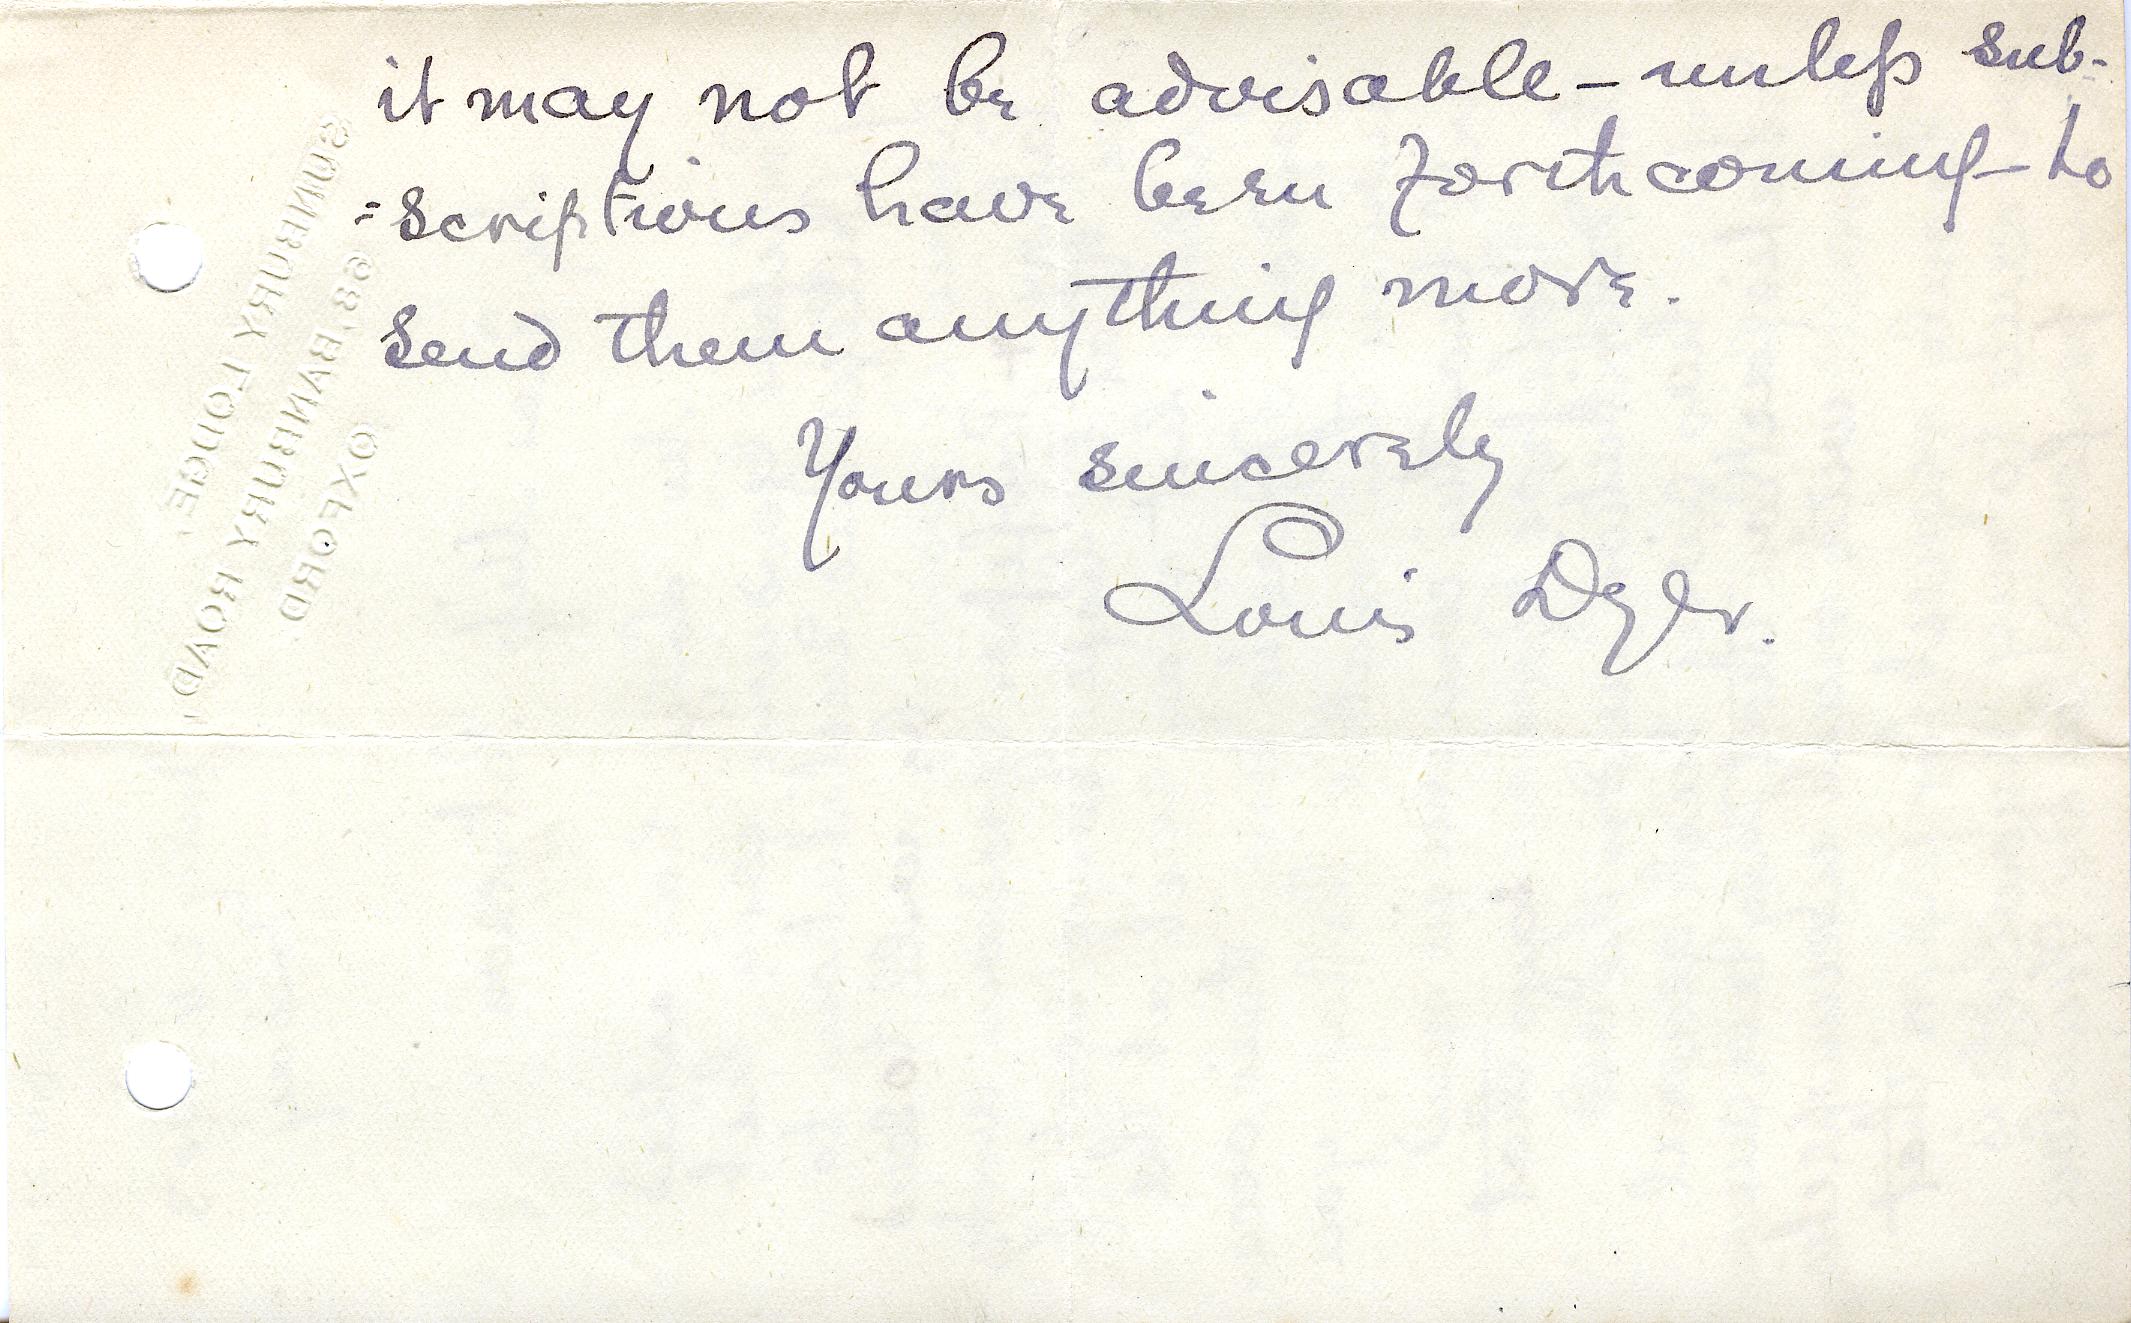 it may not be advisable – unless sub-
-scriptions have been forthcoming – to
send them anything more.
Yours sincerely
Louis Dyer.
SUNBURY LODGE,
68, BANBURY ROAD,
OXFORD.